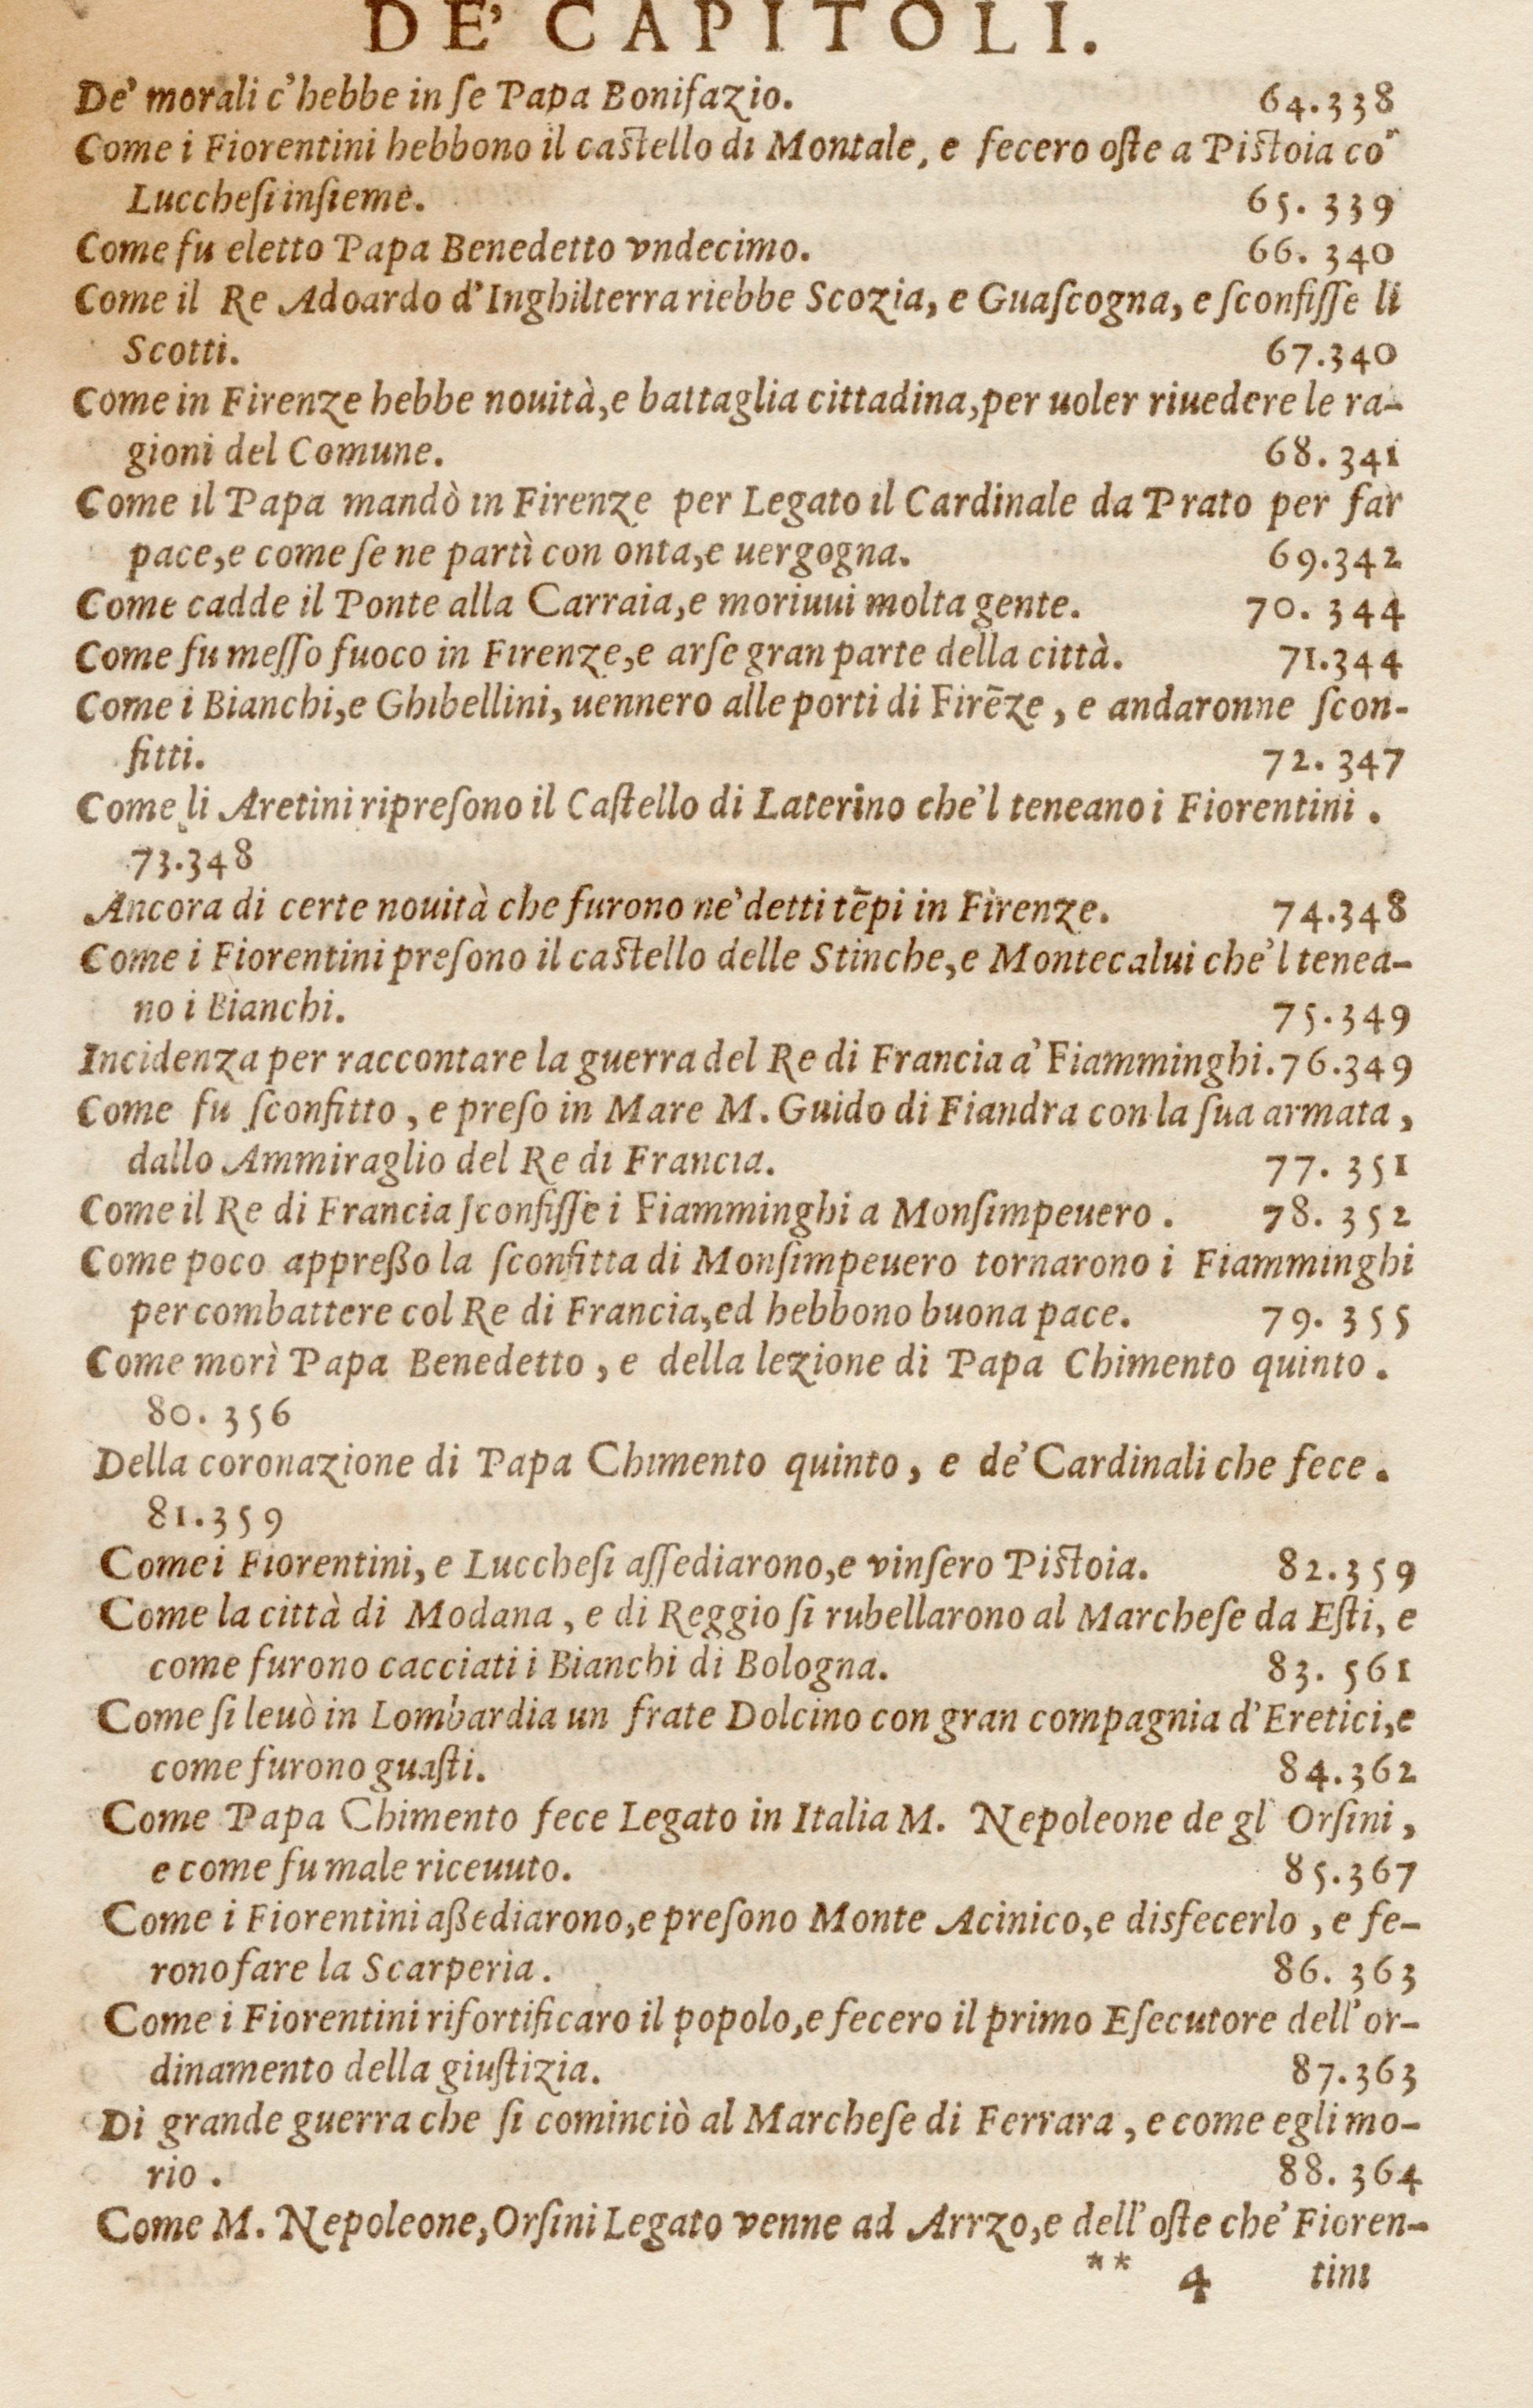 DE' CAPITOLI.
De' morali c'hebbe in ſe Papa Bonifazio. 64.338
Come i Fiorentini hebbono il caſtello di Montale, e fecero oſte a Piſtoia co'
Luccheſi inſieme. 65. 339
Come fu eletto Papa Benedetto vndecimo. 66. 340
Come il Re Adoardo d'Inghilterra riebbe Scozia, e Guaſcogna, e ſconfiſſe li
Scotti. 67.340
Come in Firenze hebbe nouità,e battaglia cittadina,per uoler riuedere le ra-
gioni del Comune. 68. 341
Come il Papa mandò in Firenze per Legato il Cardinale da Prato per far
pace,e come ſe ne partì con onta,e uergogna. 69.342
Come cadde il Ponte alla Carraia,e moriuui molta gente. 70. 344
Come fu meſſo fuoco in Firenze,e arſe gran parte della città. 71.344
Come i Bianchi,e Ghibellini, uennero alle porti di Firēze, e andaronne ſcon-
fitti. 72. 347
Come li Aretini ripreſono il Caſtello di Laterino che'l teneano i Fiorentini.
73.348
Ancora di certe nouità che furono ne' detti tēpi in Firenze. 74.348
Come i Fiorentini preſono il caſtello delle Stinche,e Montecalui che'l tenea-
no i Bianchi. 75.349
Incidenza per raccontare la guerra del Re di Francia a' Fiamminghi.76.349
Come fu ſconfitto, e preſo in Mare M. Guido di Fiandra con la ſua armata,
dallo Ammiraglio del Re di Francia. 77. 351
Come il Re di Francia ſconfiſſe i Fiamminghi a Monſimpeuero. 78. 352
Come poco appreßo la ſconfitta di Monſimpeuero tornarono i Fiamminghi
per combattere col Re di Francia,ed hebbono buona pace. 79. 355
Come morì Papa Benedetto, e della lezione di Papa Chimento quinto.
80. 356
Della coronazione di Papa Chimento quinto, e de' Cardinali che fece.
81.359
Come i Fiorentini, e Luccheſi aſſediarono,e vinſero Piſtoia. 82.359
Come la città di Modana, e di Reggio ſi rubellarono al Marcheſe da Eſti, e
come furono cacciati i Bianchi di Bologna. 83. 561
Come ſi leuò in Lombardia un frate Dolcino con gran compagnia d'Eretici,e
come furono guaſti. 84.362
Come Papa Chimento fece Legato in Italia M. Nepoleone de gl' Orſini,
e come fu male riceuuto. 85.367
Come i Fiorentini aßediarono,e preſono Monte Acinico,e disfecerlo, e fe-
rono fare la Scarperia. 86. 363
Come i Fiorentini rifortificaro il popolo,e fecero il primo Eſecutore dell'or-
dinamento della giuſtizia. 87.363
Di grande guerra che ſi cominciò al Marcheſe di Ferrara, e come egli mo-
rio. 88. 364
Come M. Nepoleone,Orſini Legato venne ad Arrzo,e dell'oſte che' Fioren-
** 4 tini